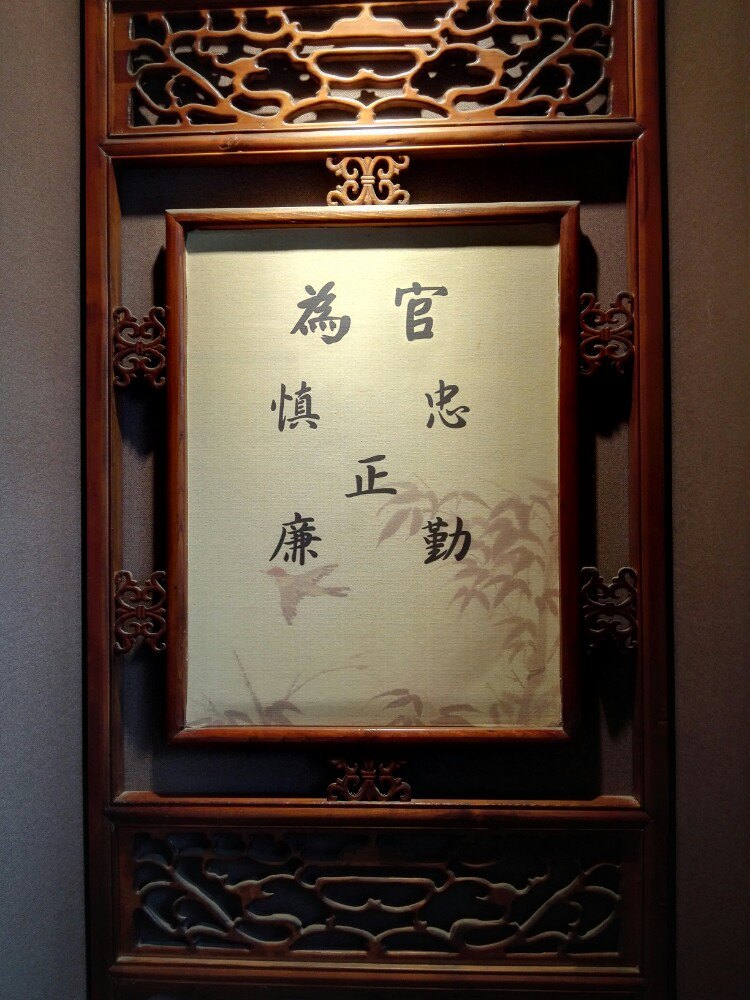 為官
慎忠
正
廉勤